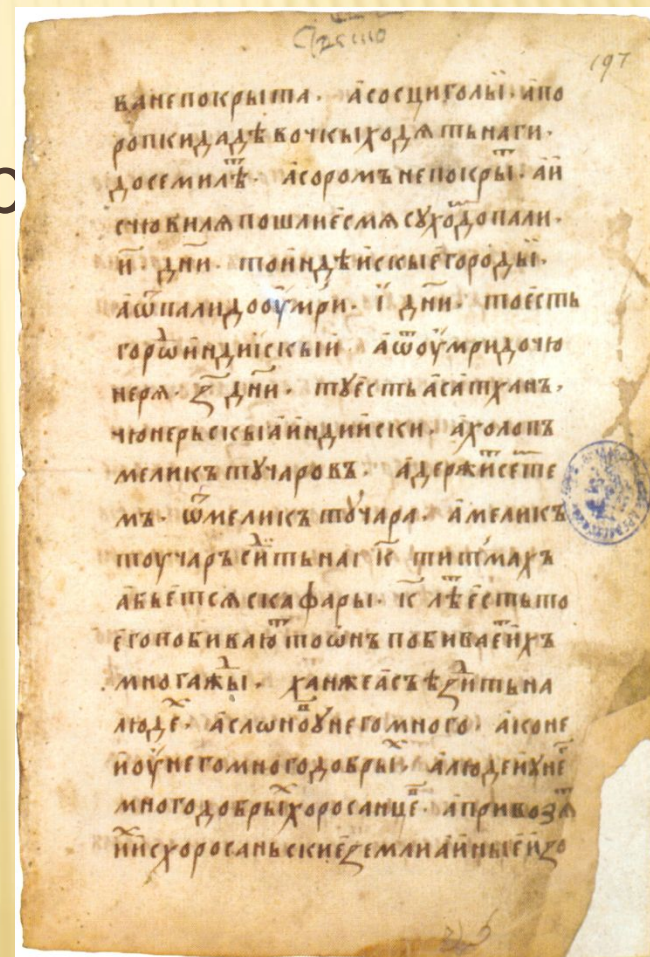 ванепокрыта. а҆сосцигольі. а҆по
ропкидадѣвочкыходѧтьнаги.
доседмилѣⷮ. а҆соромънепокрыⷮ. а҆и҆
счювилѧпошлие҆смѧсухоⷣдопали.
и҃. дн҃и. тои҆ндѣи҆скые҆городы.
а҆ѿпалидооу҆мри. і҃ дн҃и. тое҆сть
гороⷣи҆ндиі҆скыи҆ а҆ѿоу҆мридочю
нерѧ. ꙁ҃ дн҃и. туе҆стьа҆сатханъ.
чюнерьскыа҆и҆ндии҆ски. а҆холопъ
меликътучаровъ. а҆держиⷮсе҆те
мъ. ѿмеликътучара. а҆меликъ
тоучаръсѣди҆тьнаг к҃ титмахъ
а҆бье҆тсѧскафары. к҃ лѣⷮе҆стьто
е҆гопобиваюⷮтоѡнъпобивае҆ⷮи҆хъ
многажⷣы. ханжеа҆съѣꙁди҆тьна
людеⷯ. а҆слоновоу҆негомного. а҆коне
и҆оу҆негомногодобрыⷯ. а҆людеи҆уне
многодобрыⷯхоросанцеⷡ. а҆привозѧⷮ
и҆ⷯисхоросаньские҆ꙁемлиа҆и҆ные҆и҆ꙁо
197